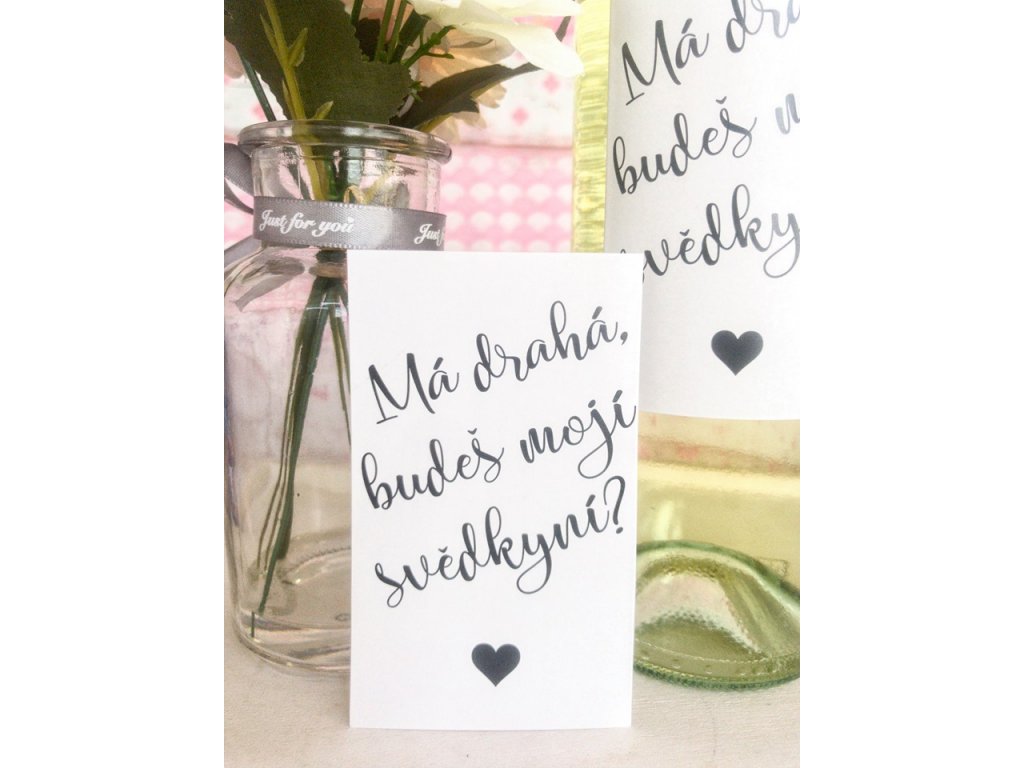 Má
budeš
svědky
Just for you
Just
Má drahá,
budeš mojí
svědkyní?